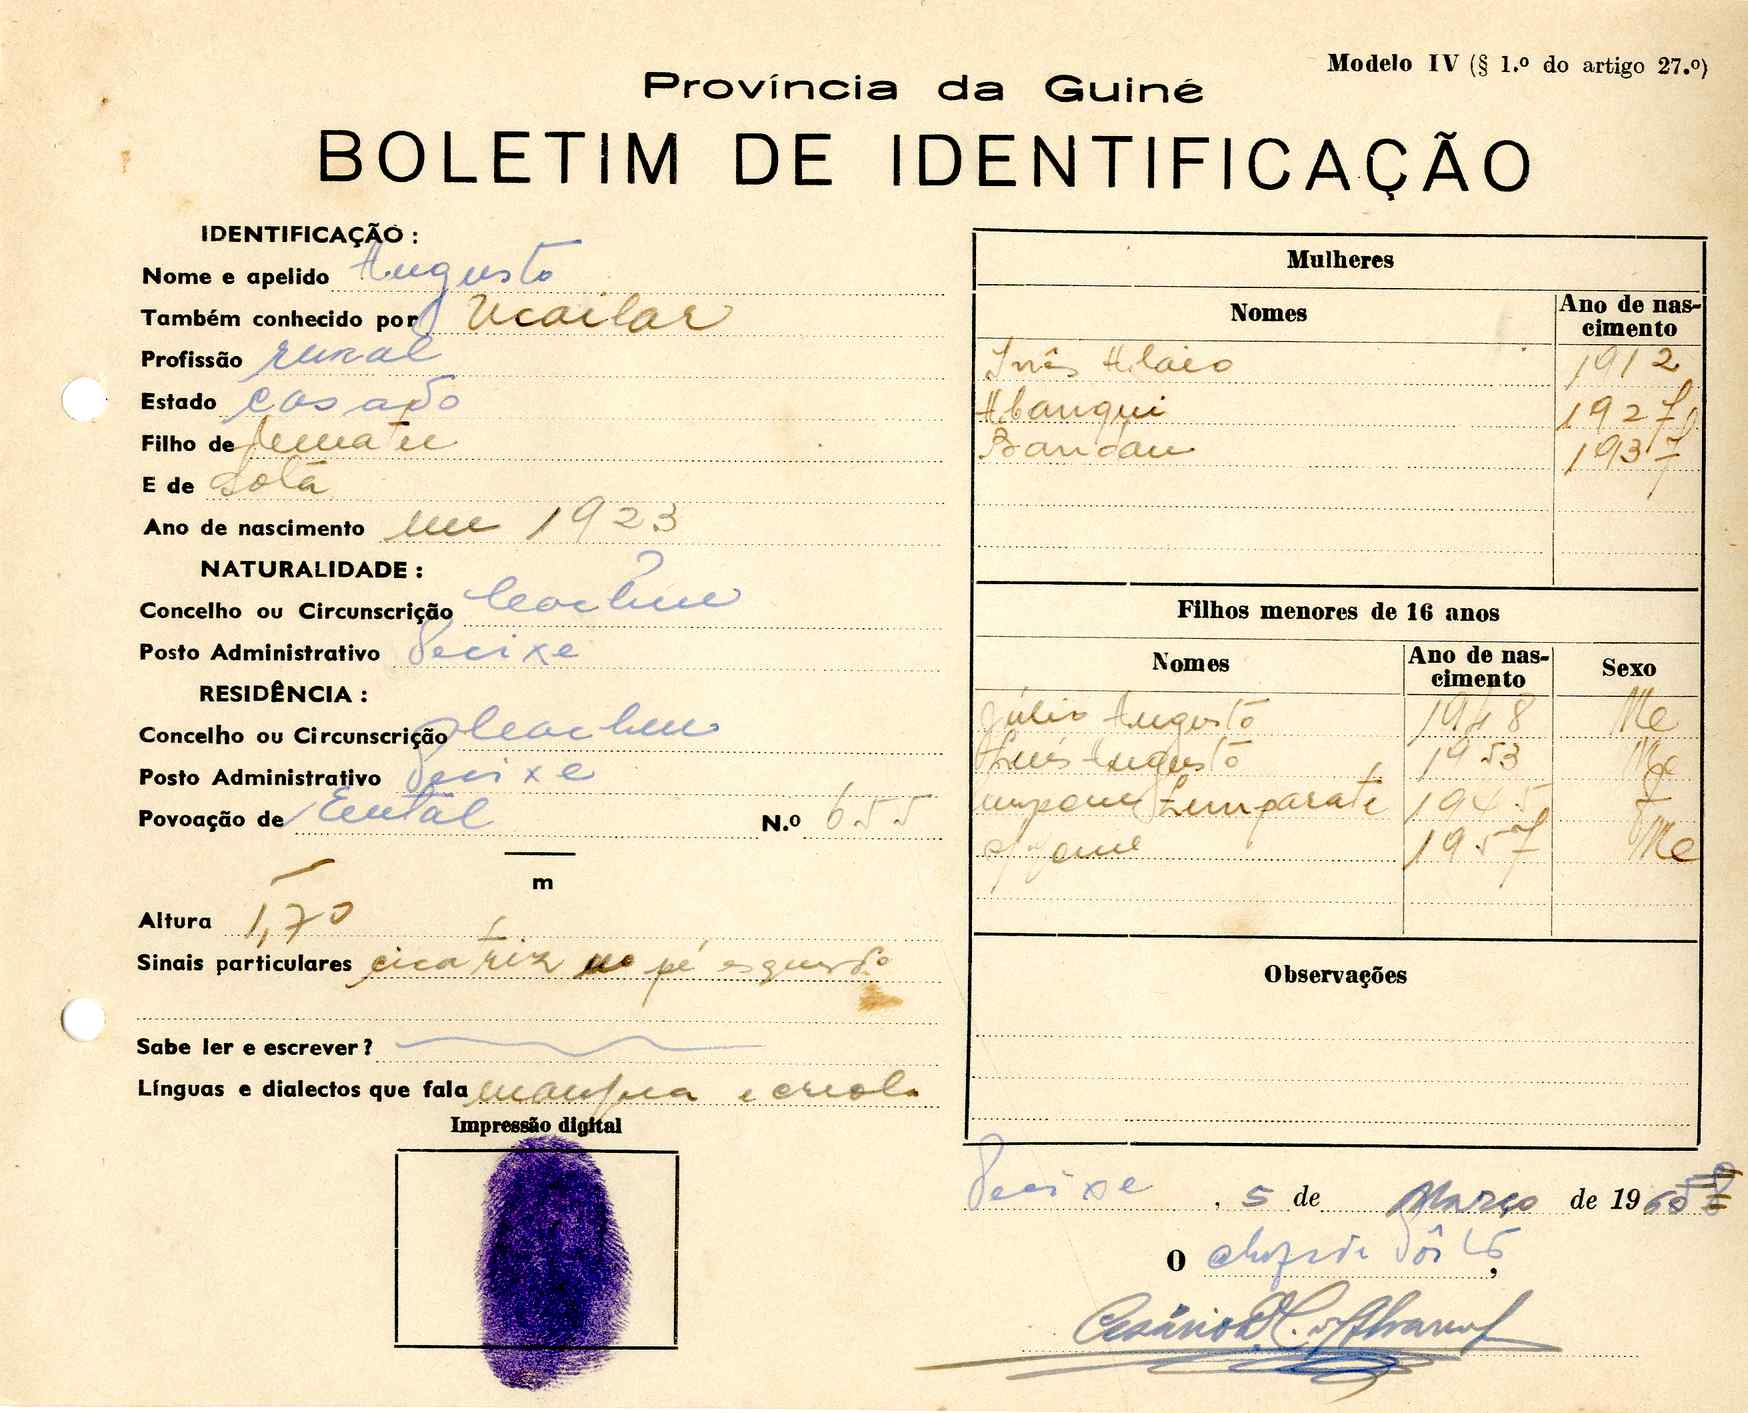 Modelo IV (§ 1.º do artigo 27.º)
Província da Guiné
BOLETIM DE IDENTIFICAÇÃO
IDENTIFICAÇÃO :
Nome e apelido Augusto
Também conhecido por Ucailar
Profissão rural
Estado casado
Filho de
E de Sotá
Ano de nascimento em 1923
NATURALIDADE :
Concelho ou Circunscrição Cacheu
Posto Administrativo Pecixe
RESIDÊNCIA :
Concelho ou Circunscrição Cacheu
Posto Administrativo Pecixe
Povoação de N.º 655
m
Altura 1,70
Sinais particulares cicatriz no pé esquerdo
Sabe ler e escrever?
Línguas e dialectos que fala manjaca e criolo
Impressão digital
Mulheres
Nomes Ano de nas-
cimento
Inês 1912
1927
1937
Filhos menores de 16 anos
Nomes Ano de nas-
cimento Sexo
Júlio Augusto 1948 Mc
Augusto 1953 Mc
1945 F
1957 Mc
Observações
Pecixe, 5 de Março de 19
O chefe de Pôsto,